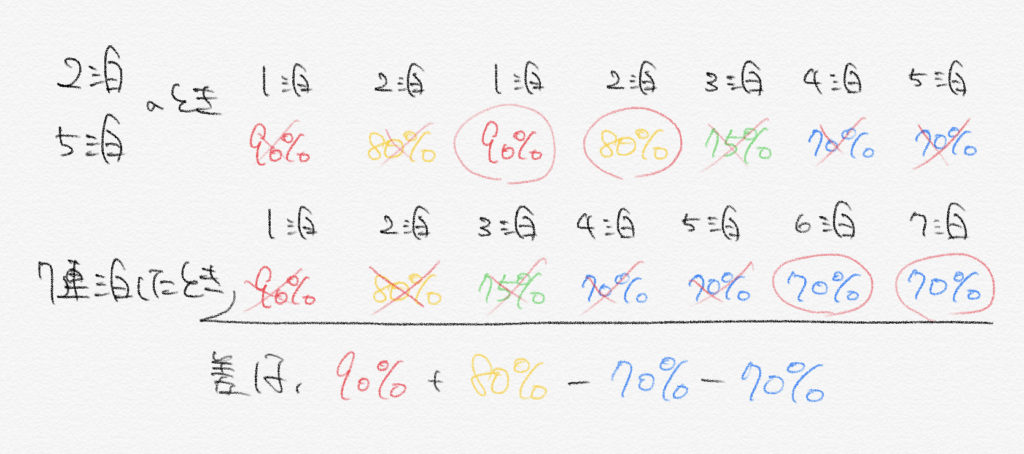 2泊
5泊 のとき
1泊 2泊 1泊 2泊 3泊 4泊 5泊
90% 80% 90% 80% 75% 70% 70%
1泊 2泊 3泊 4泊 5泊 6泊 7泊
7連泊したとき 90% 80% 75% 70% 70% 70% 70%
差は、 90% + 80% - 70% - 70%